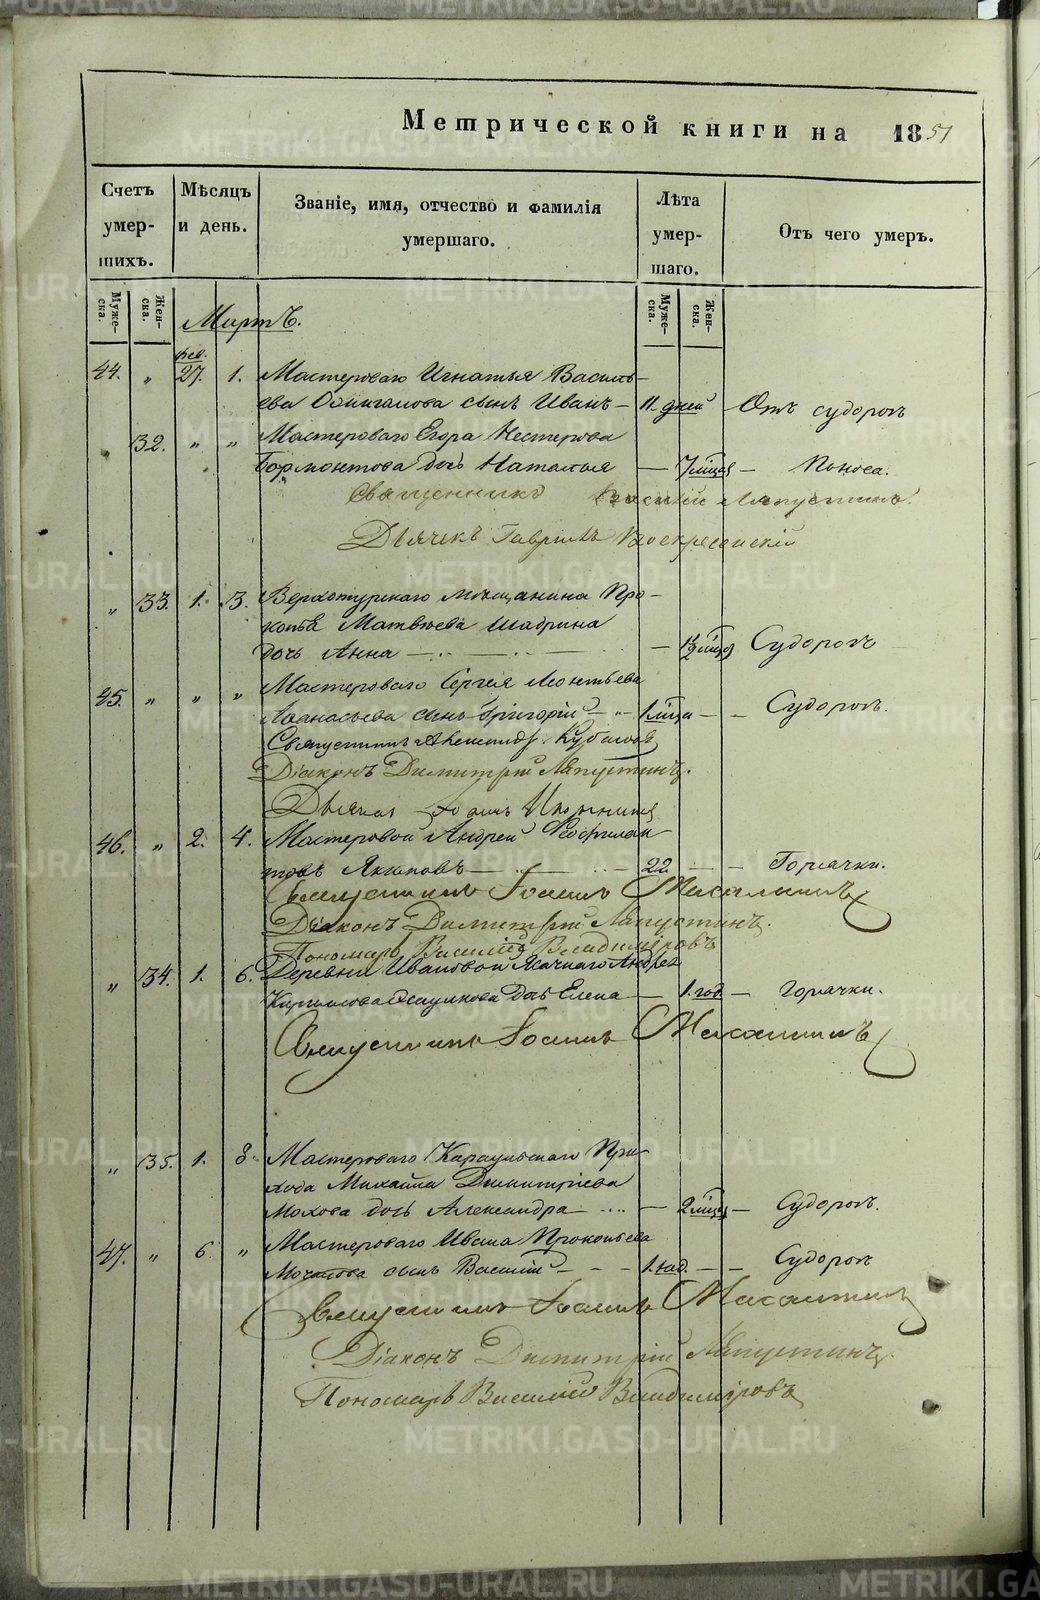 Метрической книги на 1851
Счетъ умер-шихъ.
Мѣсяцъ и день.
Званіе, имя, отчество и фамилія умершаго.
Лѣта умер-шаго.
Отъ чего умеръ.
Муже-ска. Жен-ска. Муже-ска. Жен-ска.
Мартъ.
фев.
44. „ 27. 1. Мастероваго Игнатья Василь-
ева сынъ Иванъ — 11. дней — Отъ судорогъ
32. „ „ Мастероваго Егора Нестерова
Бормонтова дочь Наталья — 7 мѣся — Поноса.
Священникъ Василій Ляпустинъ.
Дьячекъ Гавріилъ Воскресенскій
„ 33. 1. 3. Верхотурскаго мѣщанина Про-
копья Матвѣева Шадрина
дочь Анна — Судорогъ
45. „ „ „ Мастероваго Сергея Леонтьева
Афанасьева сынъ Григорій — „ 1 мѣся — Судорогъ.
Священникъ Александръ
Діаконъ Димитрій Ляпустинъ.
Дьячекъ
46. „ 2. 4. Мастеровой Андрей Феофилак-
товъ Якимовъ — 22 — Горячки.
Священникъ Іоаннъ
Діаконъ Димитрій Ляпустинъ.
Пономарь Василій Владиміровъ
„ 34. 1. 6. Деревни Ивановой Андрея
Кирилова дочь Елена — 1. год — горячки.
Священникъ Іоаннъ
„ 35. 1. 8. Мастероваго Караульскаго При-
хода Михайла Димитріева
Мохова дочь Александра — 2 мѣся — Судорогъ.
47. „ 6. „ Мастероваго Ивана Прокопьева
Мочалова сынъ Василій — 1. год. — Судорогъ
Священникъ Іоаннъ
Діаконъ Димитрій Ляпустинъ.
Пономарь Василій Владиміровъ
METRIKI.GASO-URAL.RU